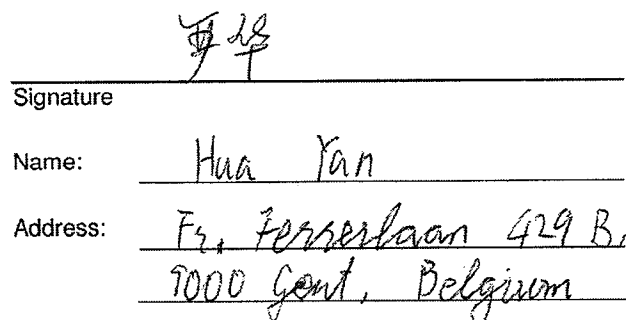 严华
Signature
Name: Hua Yan
Address: Fr. Ferrerlaan 429 B,
9000 Gent, Belgium